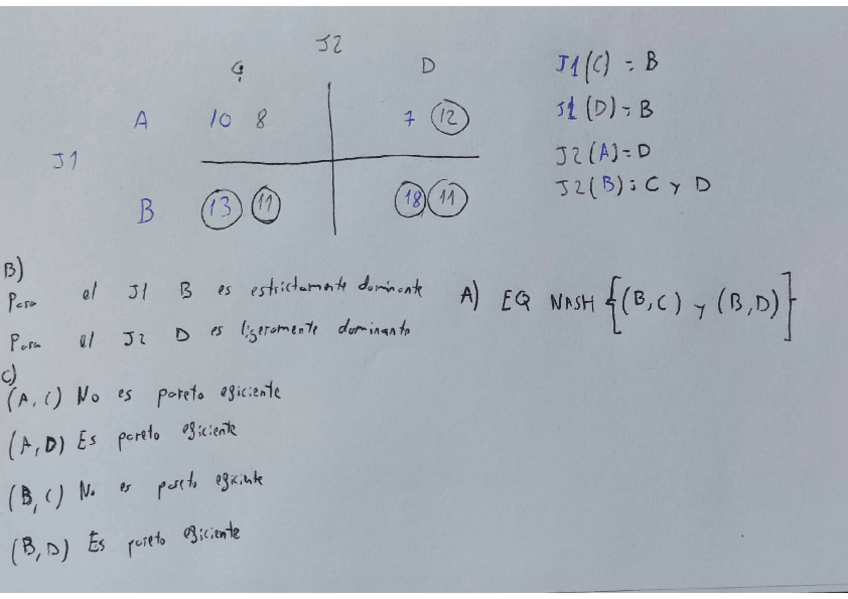 J2
C D
A 10 8 7 12
J1
B 13 11 18 11
J1(C) = B
J1(D) = B
J2(A) = D
J2(B) = C y D
B)
Para el J1 B es estrictamente dominante
Para el J2 D es ligeramente dominante
A) EQ NASH {(B,C) y (B,D)}
C)
(A,C) No es pareto eficiente
(A,D) Es pareto eficiente
(B,C) No es pareto eficiente
(B,D) Es pareto eficiente